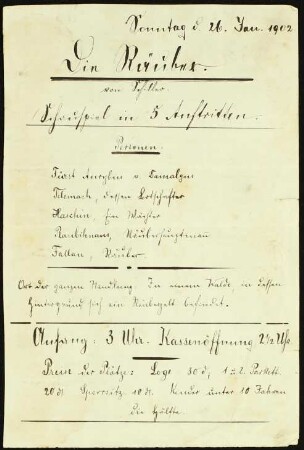 Sonntag d. 26. Jan. 1902
Die Räuber.
von Schiller.
Schauspiel in 5 Auftritten.
Personen.
Fürst
Telemach, dessen Botschafter
ein Müller
Räuberhauptmann
Räuber.
Ort der ganzen Handlung: In einem Walde, in dessen
Hintergrund sich ein befindet.
Anfang: 3 Uhr. Kassenöffnung 2 1/2 Uhr.
Preise der Plätze: Loge 30 d, 1 u 2. Parkett
20 d. Sperrsitz 10 d. Kinder unter 10 Jahren
die Hälfte.